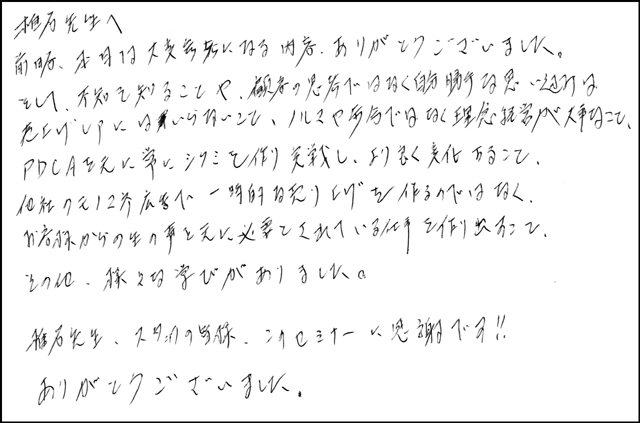 椎名先生へ
前略、本日は大変参考になる内容、ありがとうございました。
そして、不知を知ることや、顧客の思考ではなく自分勝手な思い込みは
売上げUPにはいらないこと、ノルマや歩合ではなく理念経営が大事なこと、
PDCAを元に常にシクミを作り実戦し、より良く変化すること、
他社のモノマネ広告で一時的な売り上げを作るのではなく、
お客様からの生の声を元に必要とされている仕事を作り出すこと、
その他、様々な学びがありました。
先生、スタッフの皆様、このセミナーに感謝です!!
ありがとうございました。